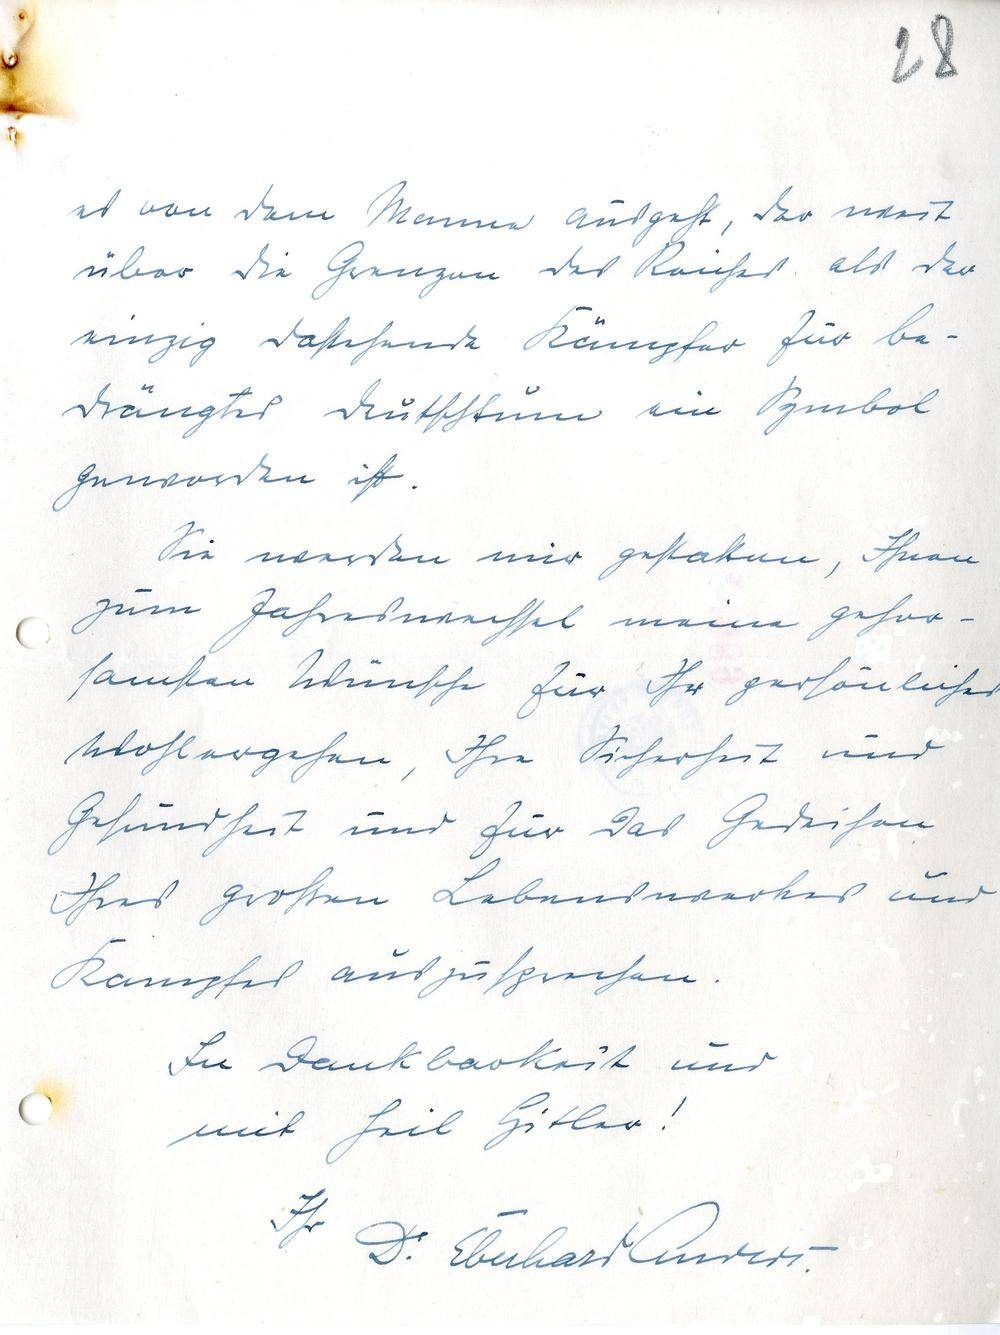 28
es von dem Manne ausgeht, der weit
über die Grenzen des Reiches als der
einzig dastehende Kämpfer für be-
drängtes Deutschtum ein Symbol
geworden ist.
Sie werden mir gestatten, Ihnen
zum Jahreswechsel meine gehor-
samsten Wünsche für Ihr persönliches
Wohlergehen, Ihre Sicherheit und
Gesundheit und für das Gedeihen
Ihres großen Lebenswerkes und
Kampfes auszusprechen.
In Dankbarkeit und
mit Heil Hitler!
Ihr
Dr. Eberhard